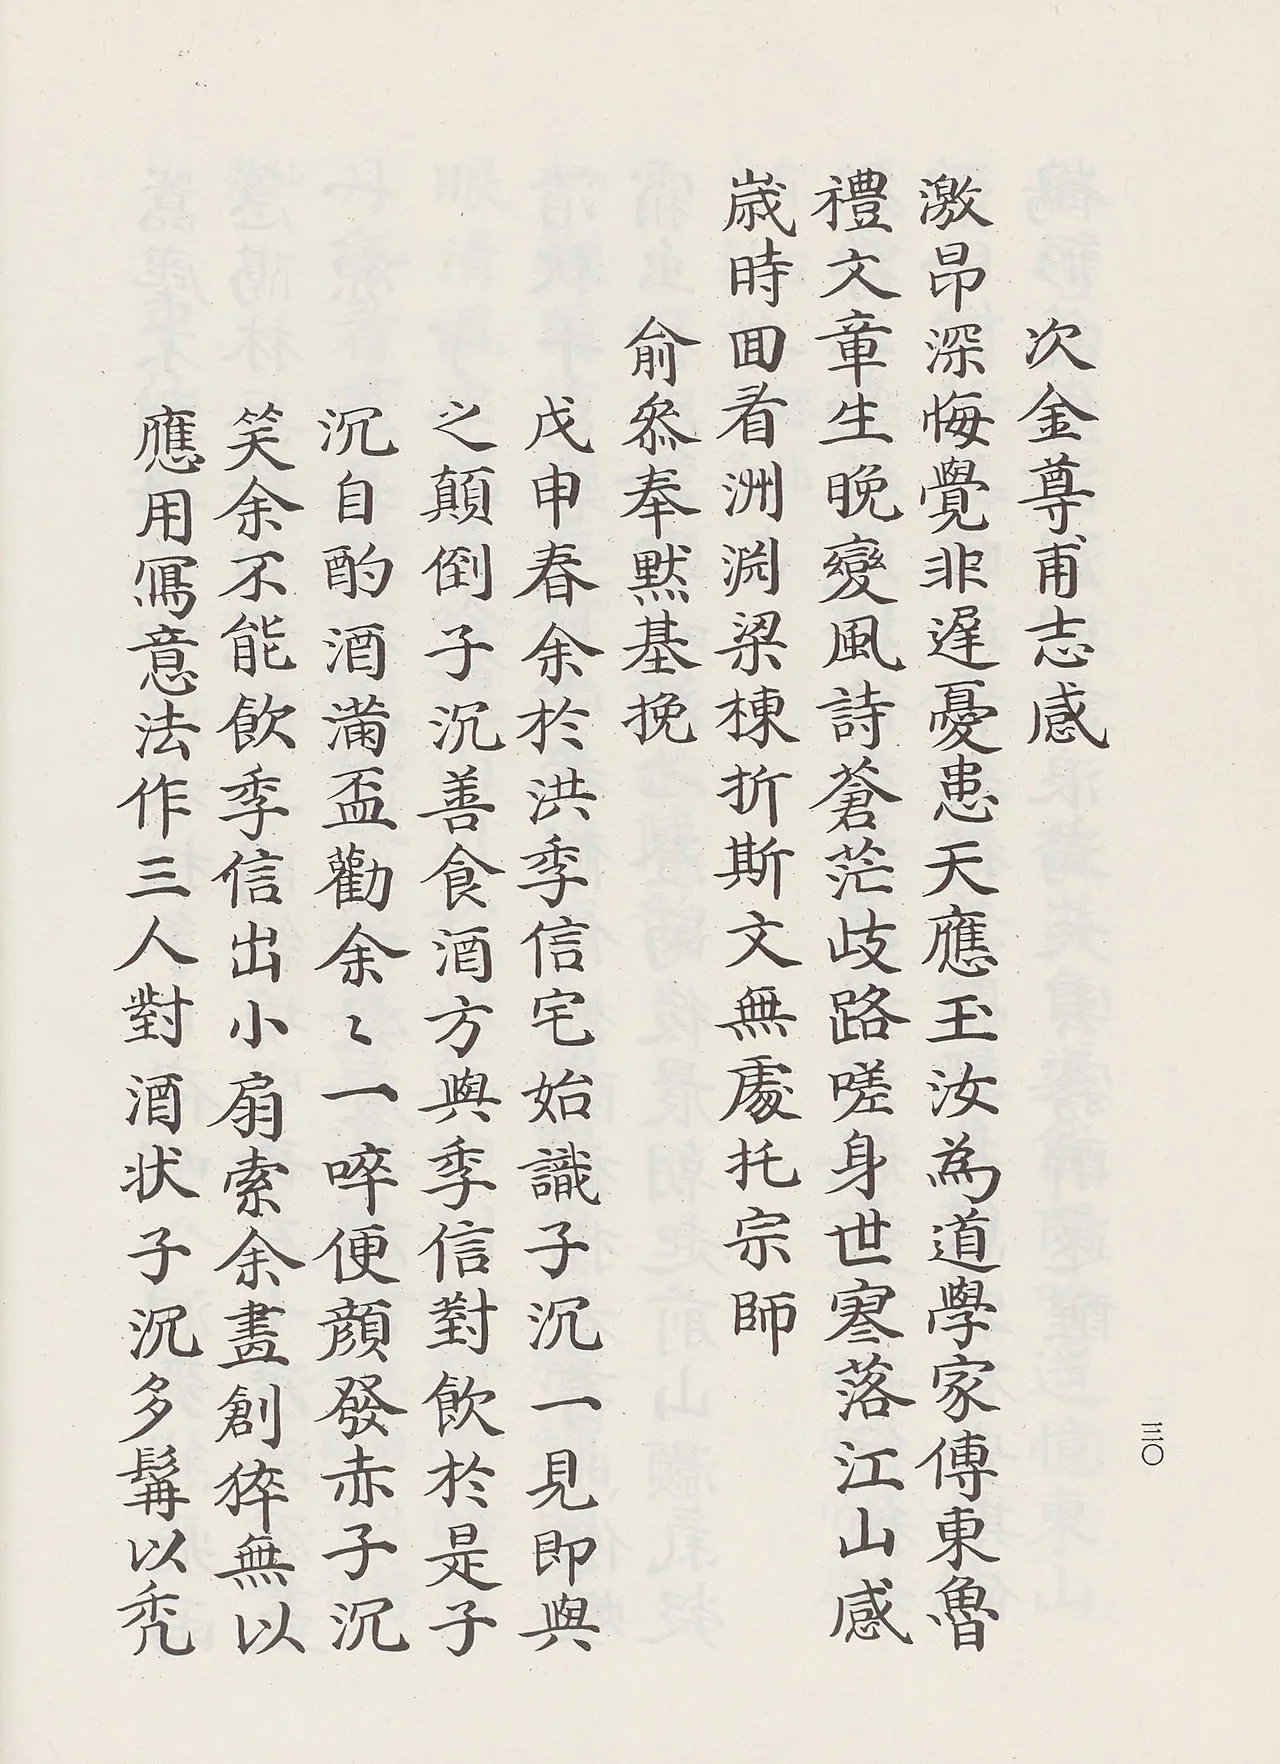 次金尊甫志感
激昂深悔覺非遲憂患天應玉汝為道學家傳東魯
禮文章生晚變風詩蒼茫歧路嗟身世寥落江山感
歲時回看洲渕梁棟折斯文無處托宗師
俞叅奉黙基挽
戊申春余於洪季信宅始識子沉一見即與
之顛倒子沉善食酒方與季信對飲於是子
沉自酌酒滿盃勸余〻一啐便顔發赤子沉
笑余不能飲季信出小扇索余畫創猝無以
應用寫意法作三人對酒状子沉多髯以秃
三〇